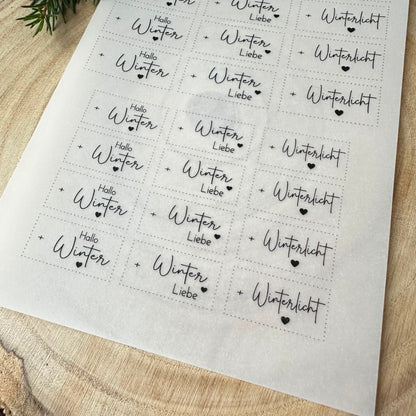 + Winter
Liebe
+ Winterlicht
Hallo
+ Winter
+ Winter
Liebe
+ Winterlicht
Hallo
+ Winter
+ Winter
Liebe
+ Winterlicht
Hallo
+ Winter
+ Winter
Liebe
+ Winterlicht
Hallo
+ Winter
+ Winter
Liebe
+ Winterlicht
Hallo
+ Winter
+ Winter
Liebe
+ Winterlicht
Hallo
+ Winter
+ Winter
Liebe
+ Winterlicht